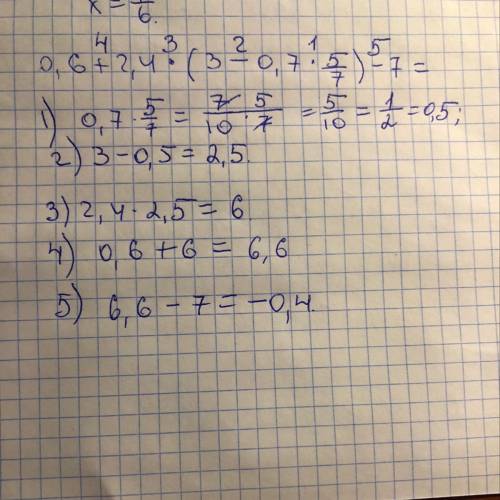 x = /6.
0,6 + 2,4 · (3 − 0,7 · 5/7) − 7 =
4 3 2 1 5
1) 0,7 · 5/7 = 7 · 5 / 10 · 7 = 5/10 = 1/2 = 0,5;
2) 3 − 0,5 = 2,5.
3) 2,4 · 2,5 = 6
4) 0,6 + 6 = 6,6
5) 6,6 − 7 = −0,4.